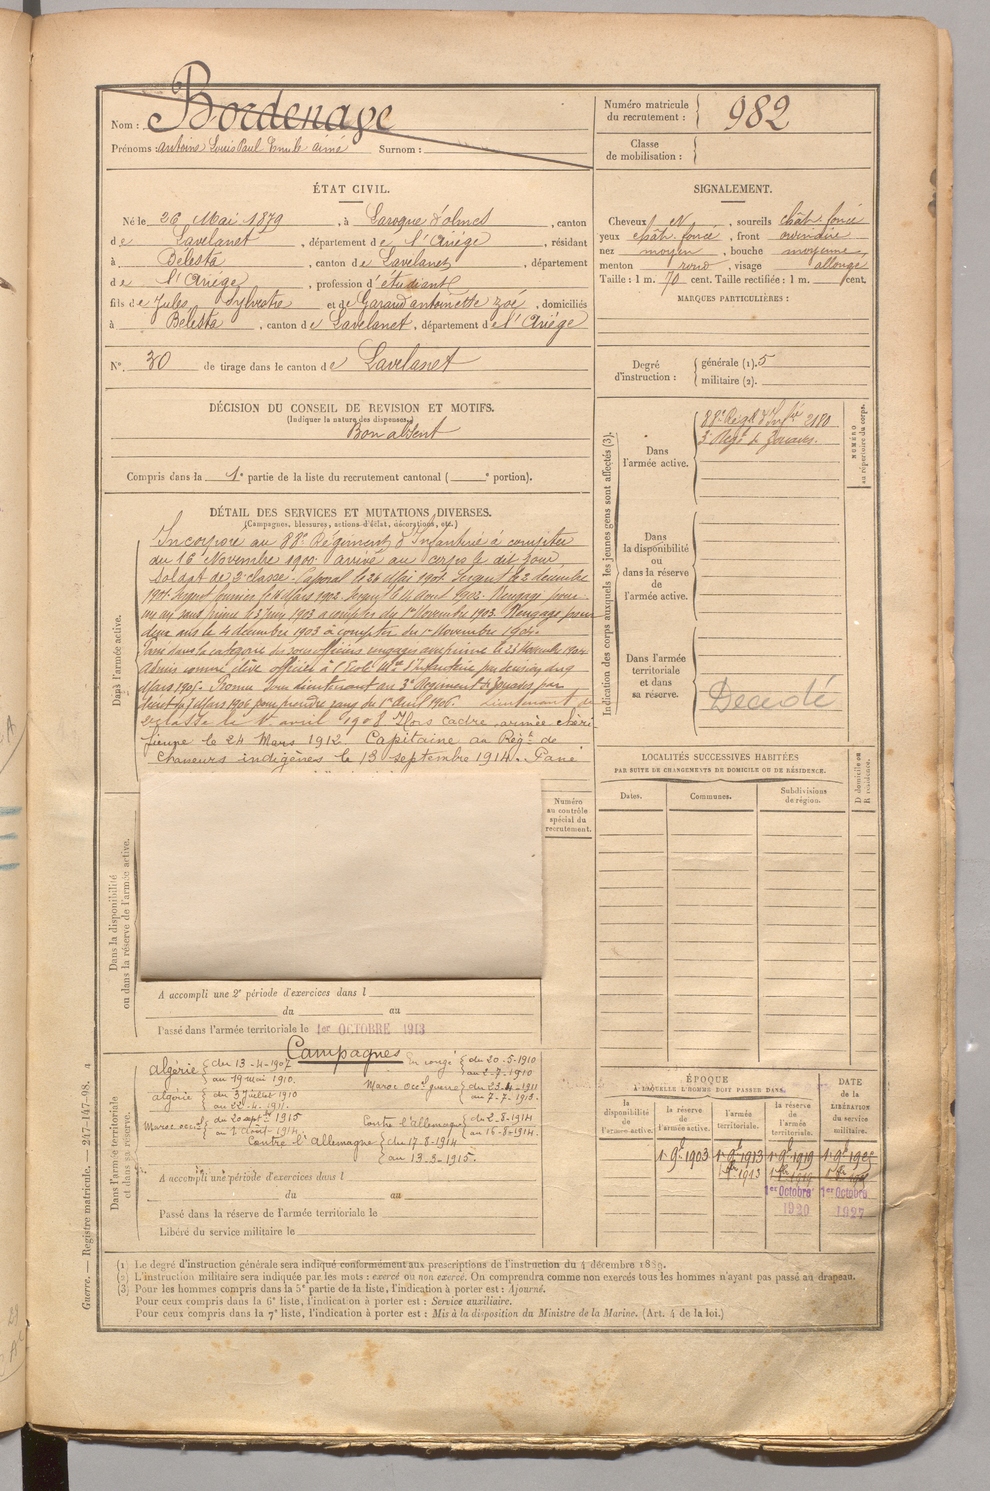 Nom : Bordenave
Prénoms : Antoine Louis Paul Emile Aimé Surnom :
Numéro matricule du recrutement : 982
Classe de mobilisation :
ÉTAT CIVIL.
Né le 26 Mai 1879, à Laroque d'olmes, canton
de Lavelanet, département de l'Ariége, résidant
à Bélesta, canton de Lavelanet, département
de l'Ariége, profession d'étudiant
fils de Jules Sylvestre et de Garaud antoinette Zoé, domiciliés
à Bélesta, canton de Lavelanet, département de l'Ariége
N° 30 de tirage dans le canton de Lavelanet
SIGNALEMENT.
Cheveux N, sourcils chât. foncé
yeux chât. foncé, front ordinaire
nez moyen, bouche moyenne
menton rond, visage allongé
Taille : 1 m. 70 cent. Taille rectifiée : 1 m. cent.
MARQUES PARTICULIÈRES :
Degré d'instruction : générale (1). 5
militaire (2).
DÉCISION DU CONSEIL DE REVISION ET MOTIFS.
(Indiquer la nature des dispenses.)
Bon absent
Compris dans la 1e partie de la liste du recrutement cantonal ( e portion).
DÉTAIL DES SERVICES ET MUTATIONS DIVERSES.
(Campagnes, blessures, actions d'éclat, décorations, etc.)
Dans l'armée active.
Incorporé au 88e Régiment d'Infanterie à compter
du 16 Novembre 1900. arrivé au corps le dit jour
Soldat de 2e classe. Caporal le 26 Mai 1901. Sergent le 2 décembre
1901. Sergent fourrier le 4 Mars 1902. Sergent le 14 Août 1902. Rengagé pour
un an sans prime le 3 juin 1903 à compter du 1er Novembre 1903. Rengagé pour
deux ans le 4 décembre 1903 à compter du 1er Novembre 1904.
dans la catégorie des sous officiers rengagés avec prime le 25 Novembre 1904
Admis comme élève officier à l'Ecole Mre d'Infanterie par décision du 9
Mars 1905. Promu Sous lieutenant au 3e Régiment de Zouaves par
décret du 7 Mars 1906 pour prendre rang du 1er Avril 1906. Lieutenant de
2e classe le 1er avril 1908 Hors cadre, armée chéri-
fienne le 24 Mars 1912. Capitaine au Régt de
Chasseurs indigènes le 13 septembre 1914. Passé
Indication des corps auxquels les jeunes gens sont affectés (3).
NUMÉRO au répertoire du corps.
Dans l'armée active.
88e Régt d'Infie 2180
3e Regt de Zouaves.
Dans la disponibilité ou dans la réserve de l'armée active.
Dans l'armée territoriale et dans sa réserve.
Décédé
LOCALITÉS SUCCESSIVES HABITÉES
PAR SUITE DE CHANGEMENTS DE DOMICILE OU DE RÉSIDENCE.
Dates. Communes. Subdivisions de région. D domicile ou R résidence.
Numéro au contrôle spécial du recrutement.
Dans la disponibilité ou dans la réserve de l'armée active.
A accompli une 2e période d'exercices dans l
du au
Passé dans l'armée territoriale le 1er OCTOBRE 1913
Dans l'armée territoriale et dans sa réserve.
Campagnes
algérie du 13-4-1907 au 19 mai 1910.
En congé du 20-5-1910 au 2-7-1910
algérie du 3 Juillet 1910 au 22-4-1911.
Maroc occl guerre du 23-4-1911 au 7-7-1913.
Maroc occl du 20 sept 1913 au 1er Août 1914.
Contre l'allemagne du 2-8-1914 au 16-8-1914.
Contre l'Allemagne du 17-8-1914 au 13-3-1915.
A accompli une période d'exercices dans l
du au
Passé dans la réserve de l'armée territoriale le
Libéré du service militaire le
ÉPOQUE
A LAQUELLE L'HOMME DOIT PASSER DANS
la disponibilité de l'armée active. la réserve de l'armée active. l'armée territoriale. la réserve de l'armée territoriale. DATE de la LIBÉRATION du service militaire.
1er 9bre 1903 1er 9bre 1913 1er 9bre 1919
1er Octobre 1920 1er Octobre 1927
(1) Le degré d'instruction générale sera indiqué conformément aux prescriptions de l'instruction du 4 décembre 1889.
(2) L'instruction militaire sera indiquée par les mots : exercé ou non exercé. On comprendra comme non exercés tous les hommes n'ayant pas passé au drapeau.
(3) Pour les hommes compris dans la 5e partie de la liste, l'indication à porter est : Ajourné.
Pour ceux compris dans la 6e liste, l'indication à porter est : Service auxiliaire.
Pour ceux compris dans la 7e liste, l'indication à porter est : Mis à la disposition du Ministre de la Marine. (Art. 4 de la loi.)
Guerre. — Registre matricule. — 247-147-98.